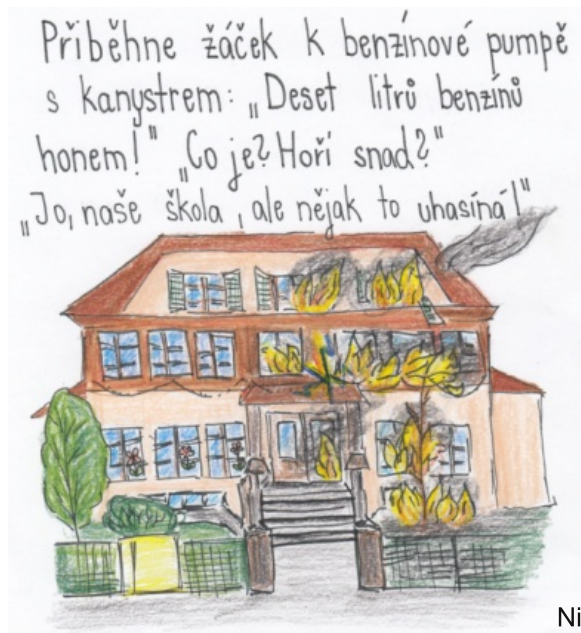 Přiběhne žáček k benzínové pumpě
s kanystrem: „Deset litrů benzínů
honem!" „Co je? Hoří snad?"
„Jo, naše škola, ale nějak to uhasíná!"
Ni